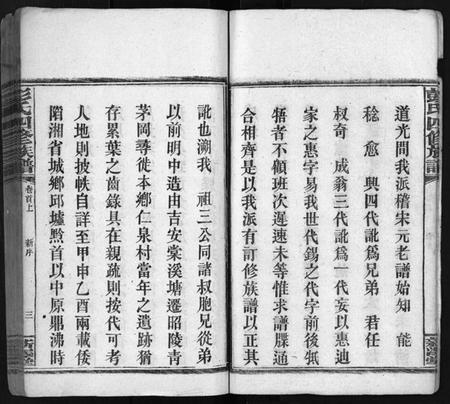 彭氏四修族譜
道光間我派稽宋元老譜始知 能
稔 愈 興四代訛爲兄弟 君任
叔奇 成翁三代訛爲一代妄以惠迪
家之惠字易我世代錫之代字前後
牾者不顧班次遲速未等惟求譜牒通
合相齊是以我派有訂修族譜以正其
訛也溯我 祖三公同諸叔胞兄從弟
以前明中造由吉安棠溪塘遷昭陵青
茅岡尋徙本鄉仁泉村當年之遺跡猶
存累葉之齒錄具在親疏則按代可考
人地則披帙自詳至甲申乙酉兩載倭
陷湘省城鄉邱墟黔首以中原鼎沸時
彭氏四修族譜
卷首上 新序 三